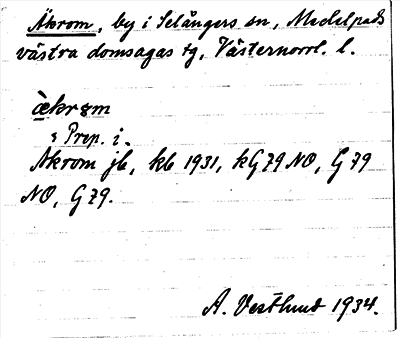 Åkrom, by i Selångers sn, Medelpads
västra domsagas tg, Västernorrl. l.
àkrɷm
: Prep. i.
Åkrom jb, kb 1931, kG 79 NO, G 79
NO, G 79.
A. Vestlund 1934.